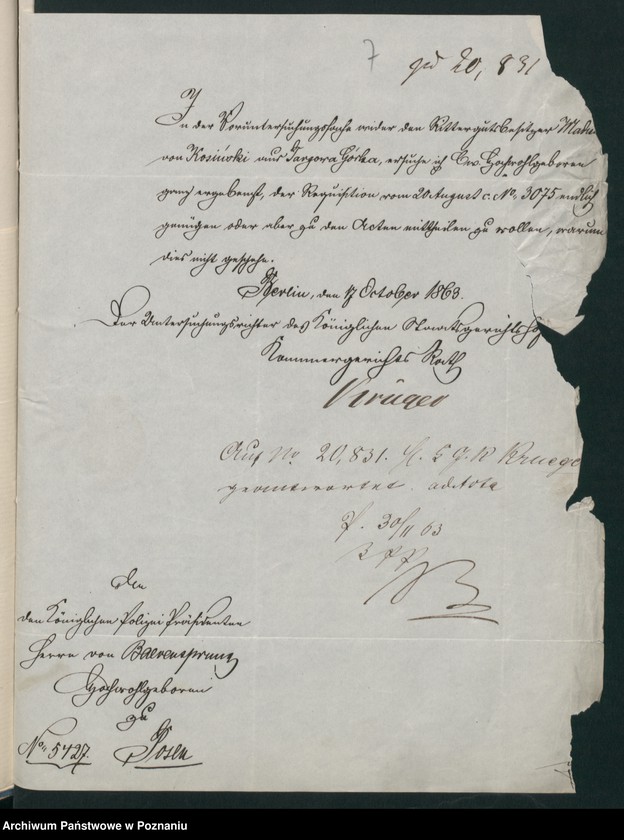 7
20,831
In der Voruntersuchungssache wider den Rittergutsbesitzer
von Kosiński aus Targowa Górka, ersuche ich Ew. Hochwohlgeboren
ganz ergebenst, der Requisition vom 20 August c. No. 3075 endlich
genügen oder aber zu den Acten mittheilen zu wollen, warum
dies nicht geschehe.
Berlin, den October 1863.
Der Untersuchungsrichter des Königlichen Staatsgerichtshofs
Kammergerichts Rath
Krüger
Auf No. 20,831.
geantwortet. ad acta
P. 30/11 63
den
den Königlichen Polizei Präsidenten
Herrn von Baerensprung
Hochwohlgeboren
zu
No. 5427. Posen
Archiwum Państwowe w Poznaniu